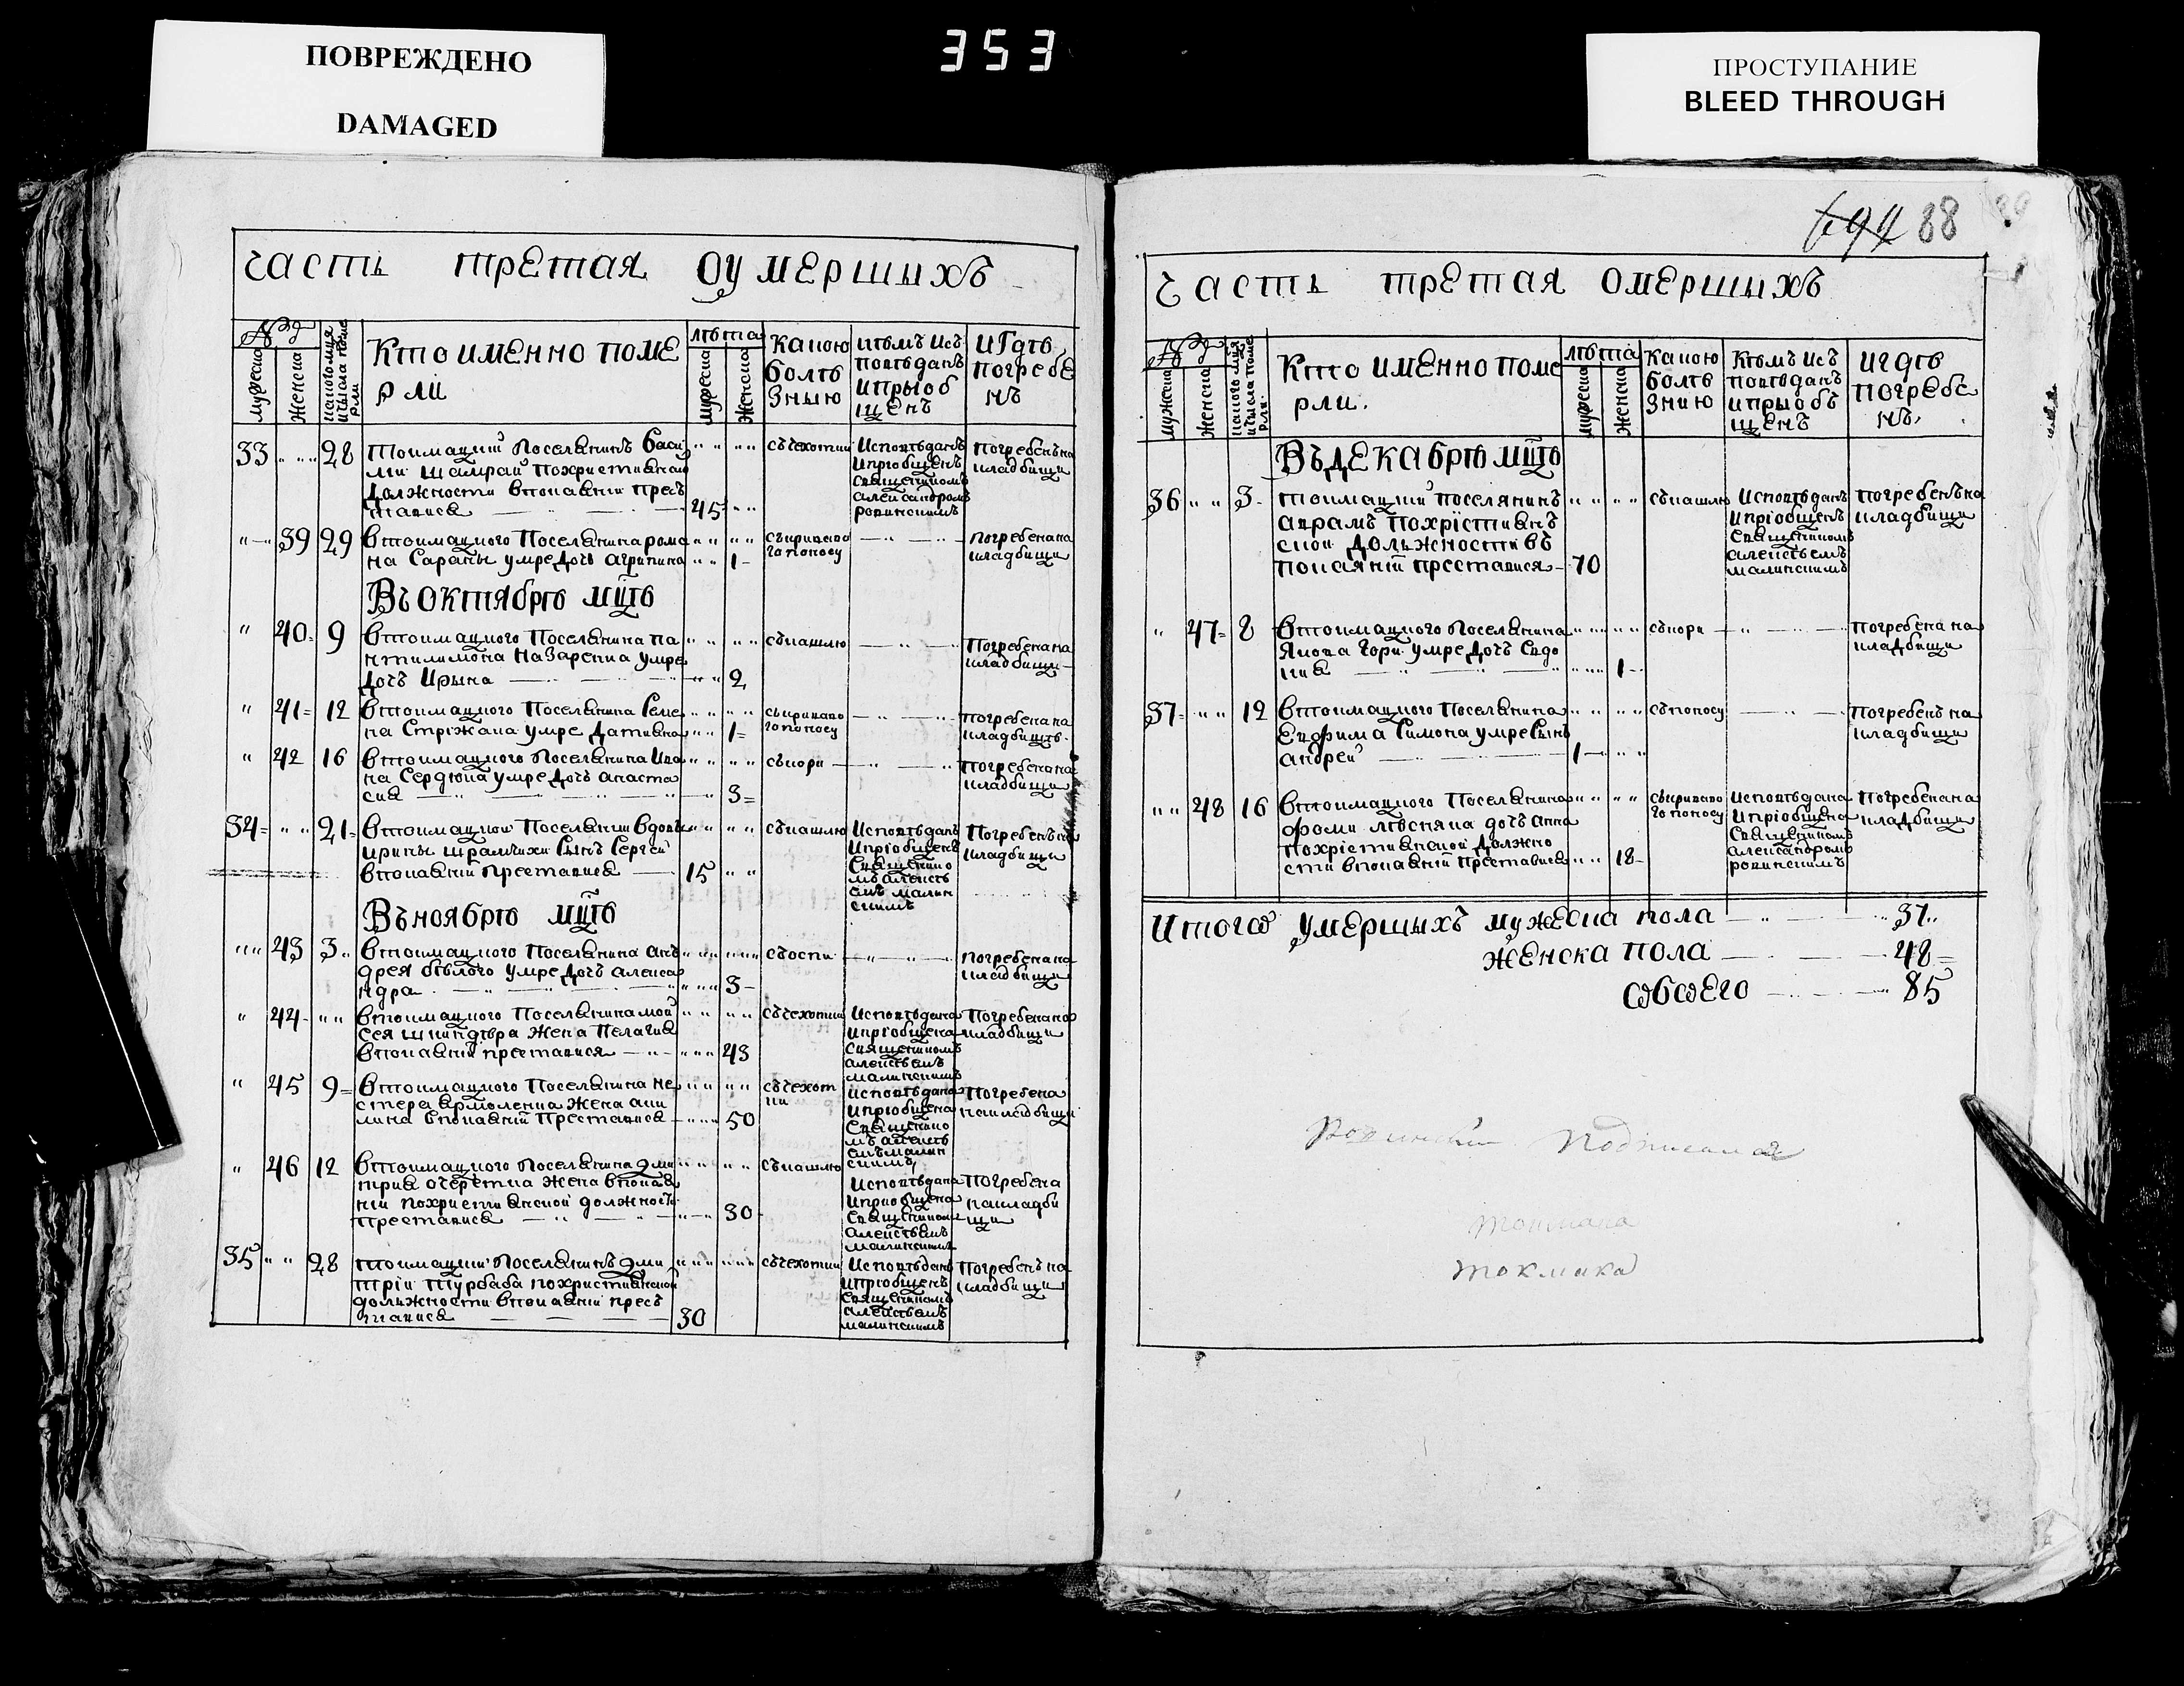 ПОВРЕЖДЕНО
DAMAGED
353
ПРОСТУПАНИЕ
BLEED THROUGH
часть третая оумершихъ
Кто именно поме
рли
лѣта
какою
болѣ
знию
кѣмъ ис
повѣданъ
и приоб
щенъ
и гдѣ
погребе
нъ
мужеска
женска
33 28 токмацкий поселянинъ васи
лий Шамрай по христианской
должности в покаянии прес
тавися 45
съчехотки
исповѣданъ
и приобщенъ
священникомъ
александромъ
ровинскимъ
погребенъ на
кладбищи
39 29 в токмацкого поселянина рома
на Сараны умре дочь агрипина 1
съ кривава
го поносу
погребена на
кладбищи
Въ октябрѣ мцѣ
40 9 в токмацкого поселянина па
нтилимона Назаренка умре
дочь Ирына 2
съ кашлю
погребена на
кладбищи
41 12 в токмацкого поселянина Семе
на Стрѣжака умре Датияна 1
съ кривава
го поносу
погребена на
кладбищѣ
42 16 в токмацкого поселянина Ива
на Сердюка умре дочь анаста
сия 3
съ кори
погребена на
кладбищи
34 21 в токмацкой поселянки вдовы
ирины шрамчихи Сынъ Сергей
в покаянии преставися 15
съ кашлю
исповѣданъ
и приобщенъ
священнико
мъ алексѣе
емъ малин
скимъ
погребенъ на
кладбищи
Въ ноябрѣ мцѣ
43 3 в токмацкого поселянина анъ
дрея бѣлого умре дочь алекса
ндра 3
съ оспи
погребена на
кладбищи
44 в токмацкого поселянина мой
сея шкиндѣра жена Пелагия
в покаянии преставися 43
съчехотки
исповѣдана
и приобщена
священникомъ
алексѣемъ
малинскимъ
погребена на
кладбищи
45 9 в токмацкого поселянина не
стера ярмоленка жена аки
лина в покаянии преставися 50
съчехот
ки
исповѣдана
и приобщена
священнико
мъ алексѣ
емъ малин
скимъ
погребена
на кладбищи
46 12 в токмацкого поселянина дми
трия очеретка жена в покая
нии по христианской должности
преставися 30
съ кашлю
исповѣдана
и приобщена
священником
алексѣемъ
малинскимъ
погребена
на кладби
щи
35 28 токмацкий поселянинъ дми
трий Турбаба по христианской
должности в покаянии прес
тавися 30
съчехотки
исповѣданъ
и приобщенъ
священникомъ
алексѣемъ
малинскимъ
погребенъ на
кладбищи
694 88
часть третая омершихъ
Кто именно поме
рли.
лѣта
какою
болѣ
знию
кѣмъ ис
повѣданъ
и приобъ
щенъ
и гдѣ
погребе
нъ
мужеска
женска
Въ декабрѣ мцѣ
36 3 токмацкий поселянинъ
аврамъ по християнъ
ской должности въ
покаянии преставися 70
съ кашлю
исповѣданъ
и приобщенъ
священникомъ
алексѣемъ
малинскимъ
погребенъ на
кладбищи
47 8 в токмацкого поселянина
Якова Гори умре дочь Євдо
кия 1
съ кори
погребена на
кладбищи
37 12 в токмацкого поселянина
Евфима Симона умре сынъ
андрей 1
съ поносу
погребенъ на
кладбищи
48 16 в токмацкого поселянина
фоми лѣсняка дочь анна
по християнской должно
сти в покаянии преставися 18
съ кривава
го поносу
исповѣдана
и приобщена
священникомъ
александромъ
ровинскимъ
погребена на
кладбищи
Итогѡ умершихъ мужеска пола 37
женска пола 48
ѡбѡего 85
токмака